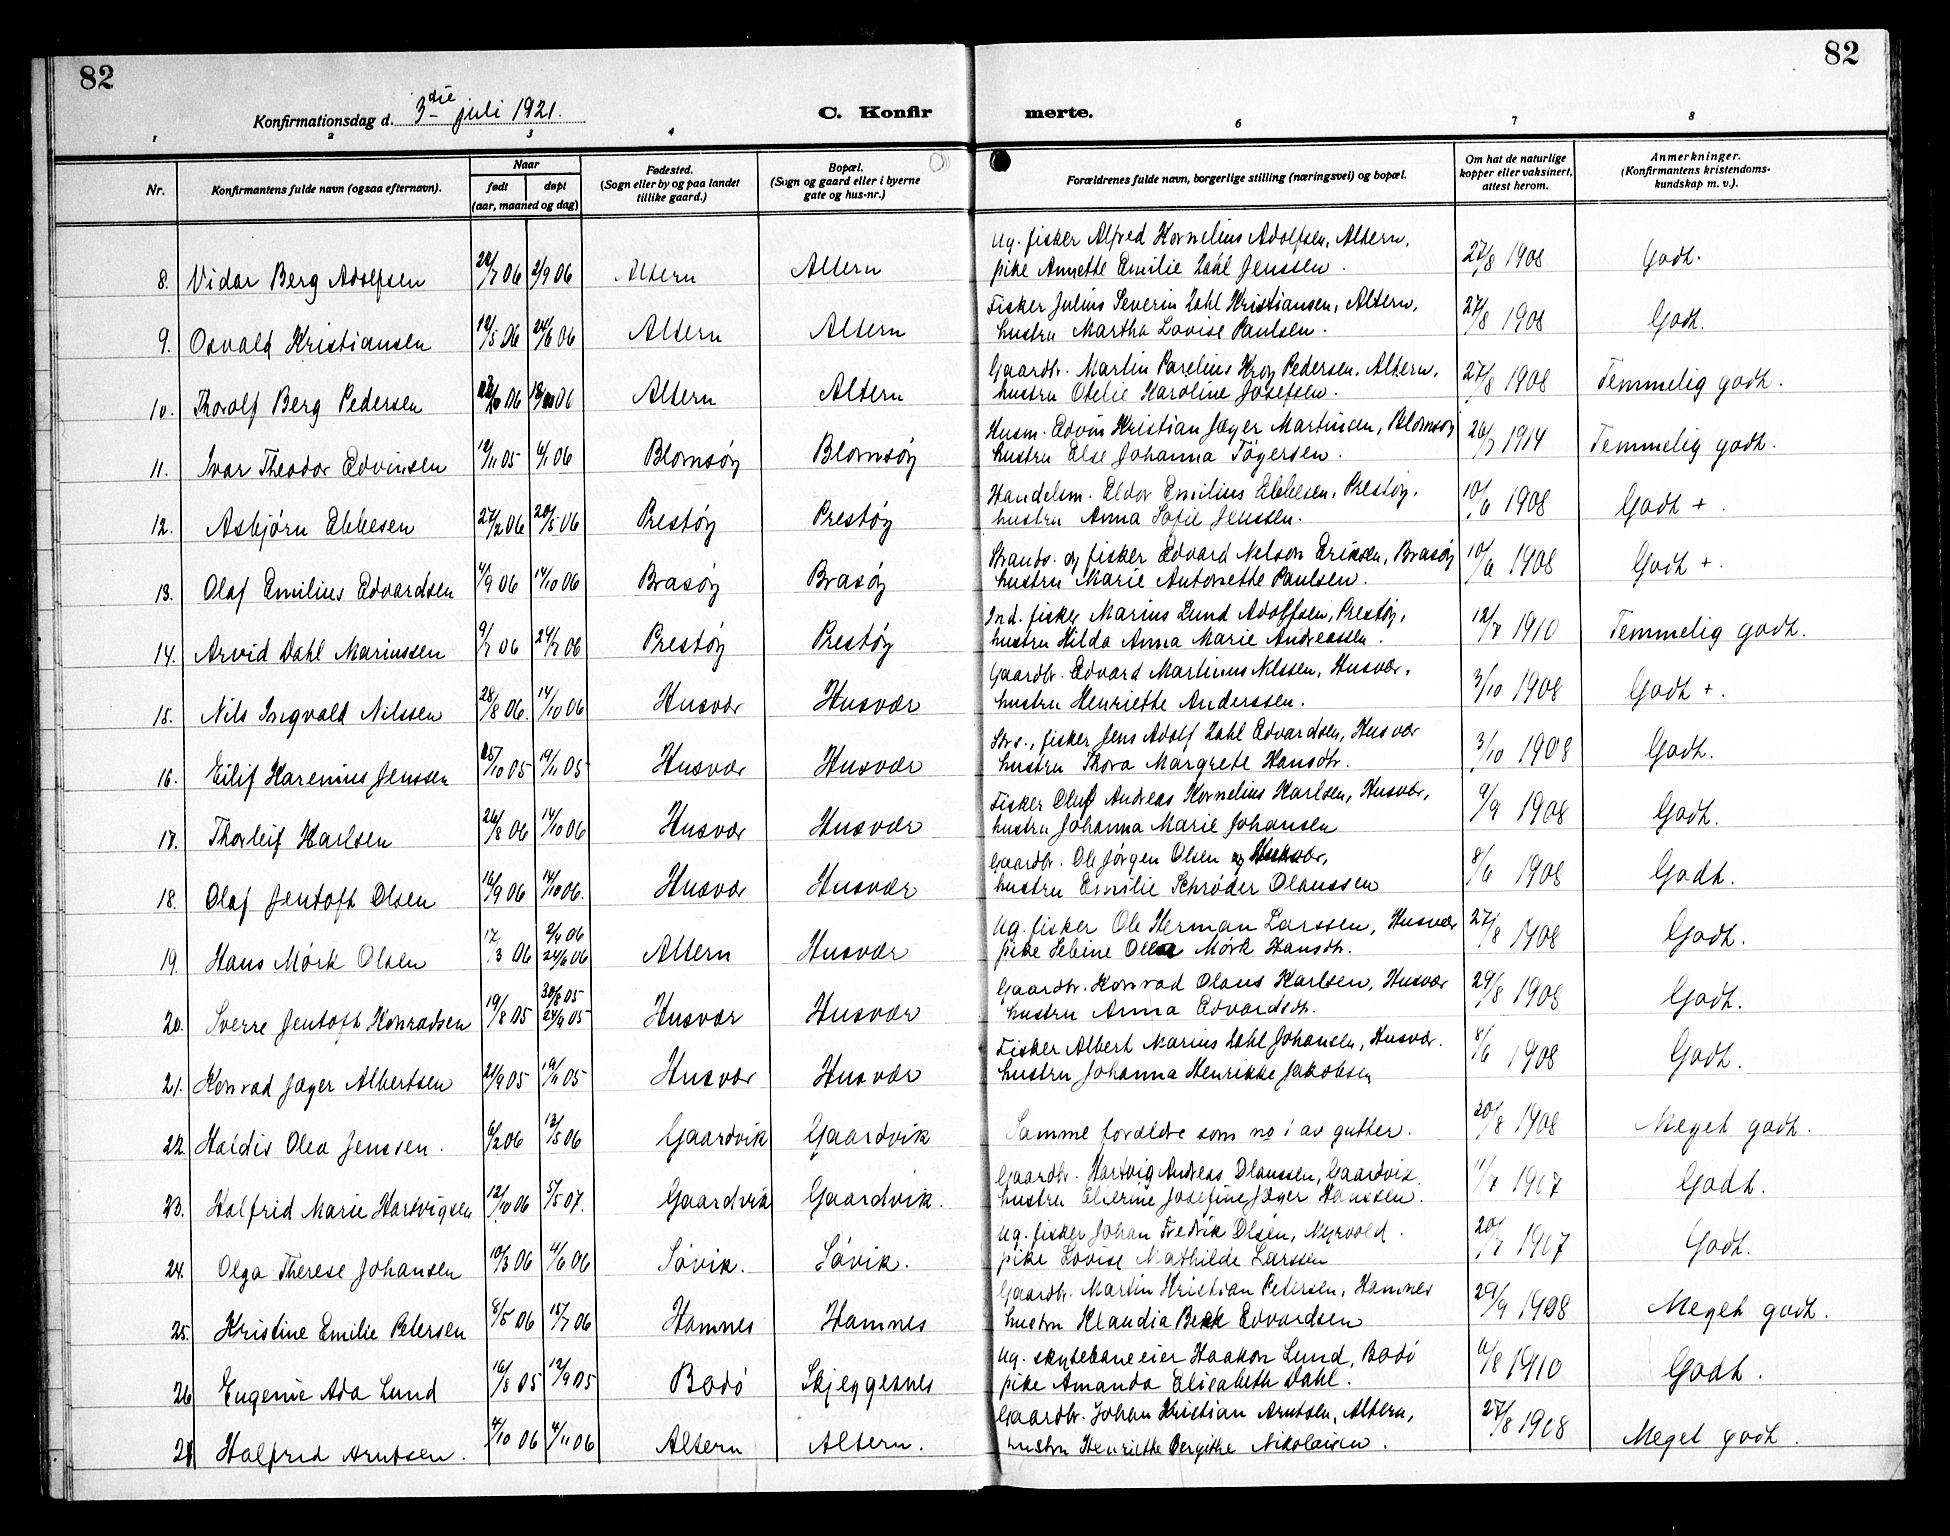 82
82
Konfirmationsdag d. 3die juli 1921.
C. Konfirmerte.
1 2 3 4 6 7 8
Nr.
Konfirmantens fulde navn (ogsaa efternavn).
Naar
født døpt
(aar, maaned og dag)
Fødested.
(Sogn eller by og paa landet
tillike gaard.)
Bopæl.
(Sogn og gaard eller i byerne
gate og hus-nr.)
Forældrenes fulde navn, borgerlige stilling (næringsvei) og bopæl.
Om hat de naturlige
kopper eller vaksinert,
attest herom.
Anmerkninger.
(Konfirmantens kristendoms-
kundskap m. v.).
Ug. fisker Alfred Kornelius Adolfsen, Altern,
8. Vidar Berg Adolfsen 2/9 06 Altern Altern pike Annette Emilie Dahl Jenssen. 27/8 1908 Godt.
Fisker Julius Severin Dahl Kristiansen, Altern,
9. Osvald Kristiansen 12/5 06 24/6 06 Altern Altern hustru Martha Lovise Paulsen. 27/8 1908 Godt.
Gaardbr. Martin Parelius Krog Pedersen, Altern,
10. Thorolf Berg Pedersen Altern Altern hustru Otelie Karoline Josefsen. 27/8 1908 Temmelig godt.
Husm. Edvin Kristian Jæger Martinsen, Blomsøy
11. Ivar Theodor Edvinsen 12/11 05 6/1 06 Blomsøy Blomsøy hustru Else Johanna Tøgersen. 26/7 1914 Temmelig godt.
Handelsm. Eldor Emilius Ebbesen, Prestøy,
12. Asbjørn Ebbesen 27/2 06 20/5 06 Prestøy Prestøy hustru Anna Sofie Jenssen. 10/6 1908 Godt +.
Strands. og fisker Edvard Nelson Eriksen, Brasøy
13. Olaf Emilius Edvardsen 4/9 06 14/10 06 Brasøy Brasøy hustru Marie Antonette Paulsen. 10/6 1908 Godt +.
Ind. fisker Marius Lund Adolfsen, Prestøy,
14. Arvid Dahl Mariussen 9/7 06 Prestøy Prestøy hustru Hilda Anna Marie Andreassen. 12/7 1910 Temmelig godt.
Gaardbr. Edvard Martinus Nilssen, Husvær,
15. Nils Ingvald Nilssen 28/8 06. 14/10 06 Husvær Husvær hustru Henriette Anderssen. 3/10 1908 Godt +.
Strs., fisker Jens Adolf Dahl Edvardsen, Husvær
16. Eilif Harenius Jenssen 25/10 05 19/11 05 Husvær Husvær hustru Thora Margrete Hansdtr. 3/10 1908 Godt.
Fisker Oluf Andreas Kornelius Karlsen, Husvær,
17. Thorleif Karlsen 26/8 06 14/10 06 Husvær Husvær hustru Johanna Marie Johansen 9/9 1908 Godt.
Gaardbr. Ole Jørgen Olsen Husvær,
18. Olaf Jentoft Olsen 16/9 06 14/10 06. Husvær Husvær hustru Emilie Schrøder Olaussen 8/6 1908 Godt.
Ug. fisker Ole Herman Larssen, Husvær
19. Hans Mørk Olsen 17/3 06 2/4 06 24/6 06 Altern Husvær pike Sebine Olea Mørk Hansdtr. 27/8 1908 Godt.
Gaardbr. Konrad Olaus Karlsen, Husvær
20. Sverre Jentoft Konradsen 19/8 05 30/8 05 24/9 05 Husvær Husvær hustru Anna Edvardsdtr. 29/8 1908 Godt.
Fisker Albert Marius Dahl Johansen, Husvær.
21. Konrad Jæger Albertsen 21/9 05 19/11 05 Husvær Husvær hustru Johanna Henrikke Jakobsen 8/6 1908 Godt.
22. Haldis Olea Jenssen. 6/2 06 13/5 06 Gaardvik Gaardvik Samme forældre som no 1 av gutter. 20/8 1908 Meget godt.
Gaardbr. Hartvig Andreas Olaussen, Gaardvik.
23. Halfrid Marie Hartvigsen 12/10 06 5/5 07. Gaardvik Gaardvik. hustru Elierine Josefine Jæger Hanssen. 11/7 1907 Godt.
Ug. fisker Johan Fredrik Olsen, Nyrvold.
24. Olga Therese Johansen 10/3 06 4/6 06 Søvik. Søvik. pike Lovise Mathilde Larssen 20/7 1907 Godt.
Gaardbr. Martin Kristian Petersen, Hamnes
25. Kristine Emilie Petersen 8/5 06 15/7 06 Hamnes Hamnes hustru Klaudia Bekk Edvardsen 29/9 1908 Meget godt.
Ug. skytebaneeier Haakon Lund, Bodø
26 Eugenie Ada Lund 16/8 05 17/9 05 Bodø Skjeggesnes pike Amanda Elisabeth Dahl. 11/8 1910 Godt.
Gaardbr. Johan Kristian Arntsen, Altern,
27 Halfrid Arntsen. 4/10 06 4/11 06 Altern Altern. hustru Henriette Bergitte Nikolaisen. 27/8 1908 Meget godt.